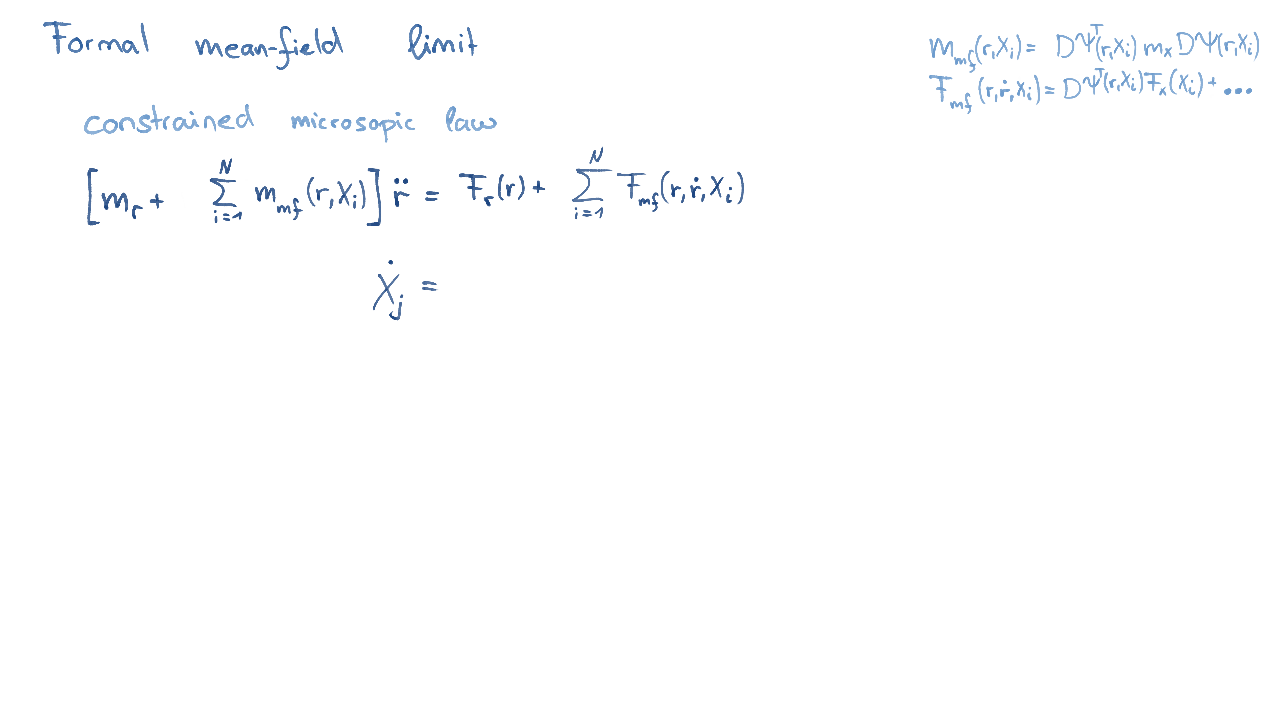 Formal mean-field limit
m_mf(r,X_i) = DΨ^T(r,X_i) m_x DΨ(r,X_i)
F_mf(r,ṙ,X_i) = DΨ^T(r,X_i) F_x(X_i) + ...
constrained microsopic law
[m_r + ∑_{i=1}^N m_mf(r,X_i)] r̈ = F_r(r) + ∑_{i=1}^N F_mf(r,ṙ,X_i)
Ẋ_j =